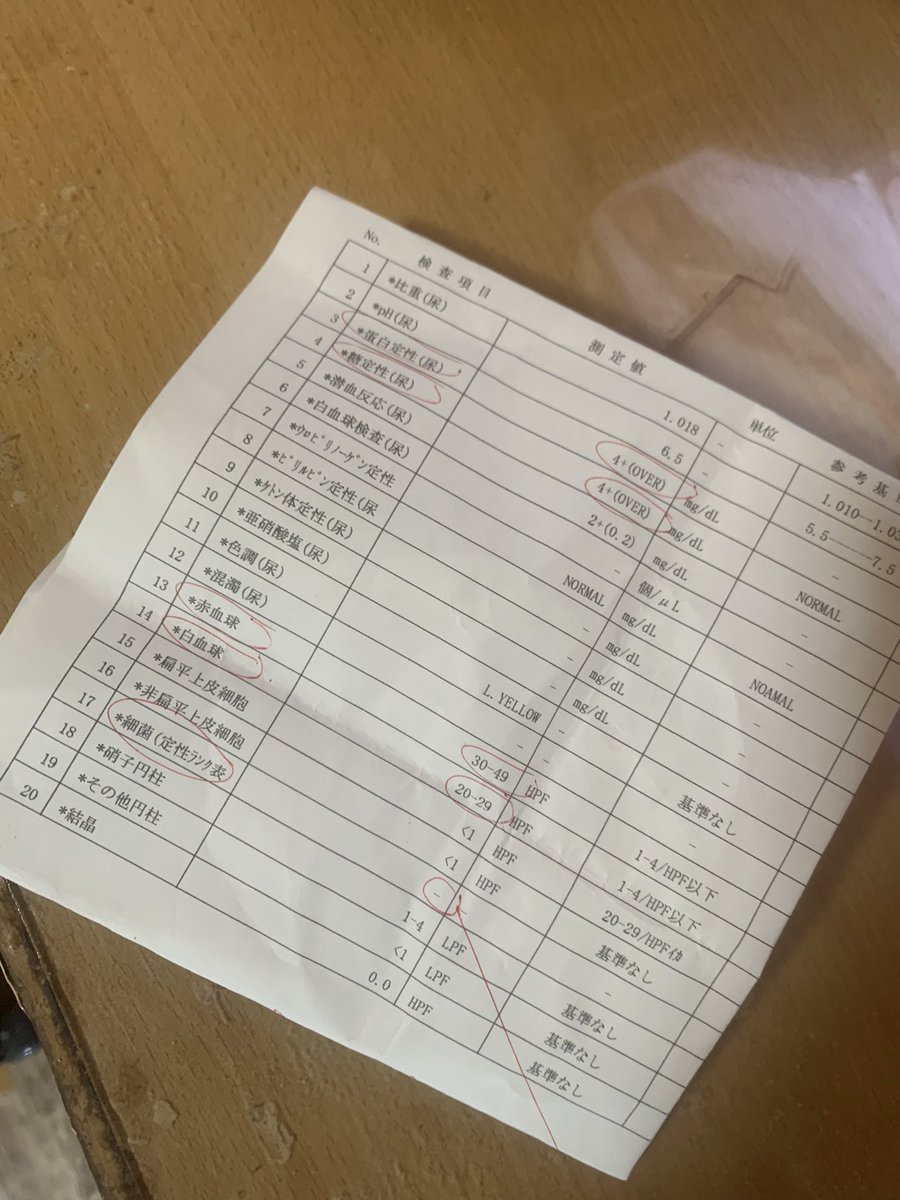 No. 検査項目 測定値 単位 参考基
1 *比重(尿) 1.018 - 1.010--1.03
2 *pH(尿) 6.5 - 5.5------7.5
3 *蛋白定性(尿) 4+(OVER) mg/dL -
4 *糖定性(尿) 4+(OVER) mg/dL NORMAL
5 *潜血反応(尿) 2+(0.2) mg/dL -
6 *白血球検査(尿) - 個/μL -
7 *ｳﾛﾋﾞﾘﾉｰｹﾞﾝ定性 NORMAL mg/dL NOAMAL
8 *ﾋﾞﾘﾙﾋﾞﾝ定性(尿 - mg/dL -
9 *ｹﾄﾝ体定性(尿) - mg/dL -
10 *亜硝酸塩(尿) - mg/dL -
11 *色調(尿) L.YELLOW 基準なし
12 *混濁(尿) - - -
13 *赤血球 30-49 HPF 1-4/HPF以下
14 *白血球 20-29 HPF 1-4/HPF以下
15 *扁平上皮細胞 <1 HPF 20-29/HPFｲｶ
16 *非扁平上皮細胞 <1 HPF 基準なし
17 *細菌(定性ﾗﾝｸ表 - - -
18 *硝子円柱 1-4 LPF 基準なし
19 *その他円柱 <1 LPF 基準なし
20 *結晶 0.0 HPF 基準なし